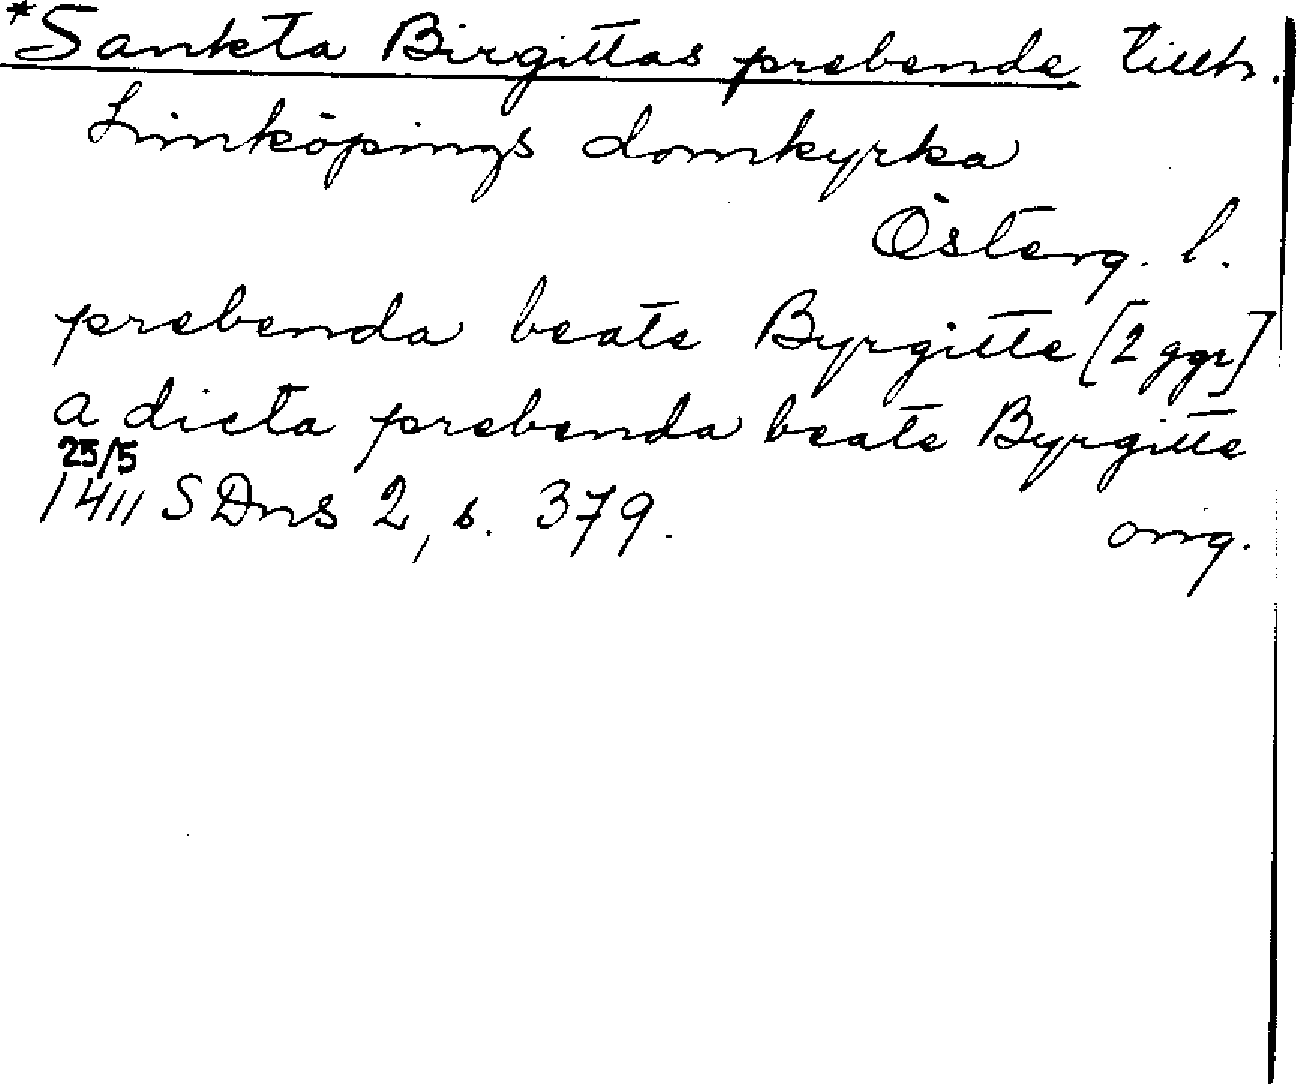 *Sankta Birgittas prebende tillh.
Linköpings domkyrka
Österg. l.
prebenda beate Byrgitte [2 ggr]
a dicta prebenda beate Byrgitte
25/5
1411 SDns 2, s. 379. orig.